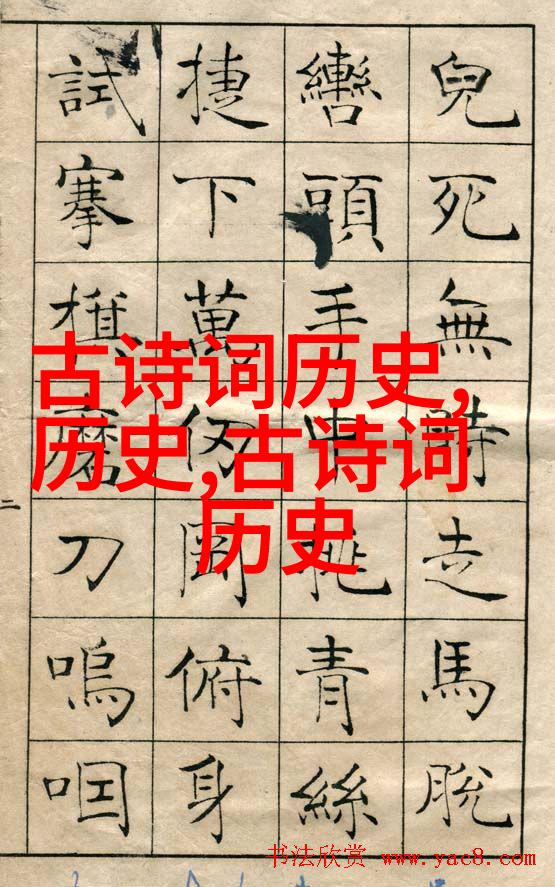 兒死無時走馬脫
轡頭手中挑青絲
捷下萬仞岡俯身
試搴旗磨刀嗚咽
二
古诗词历史,
历史,古诗词
历史
书法欣赏 www.yac8.com